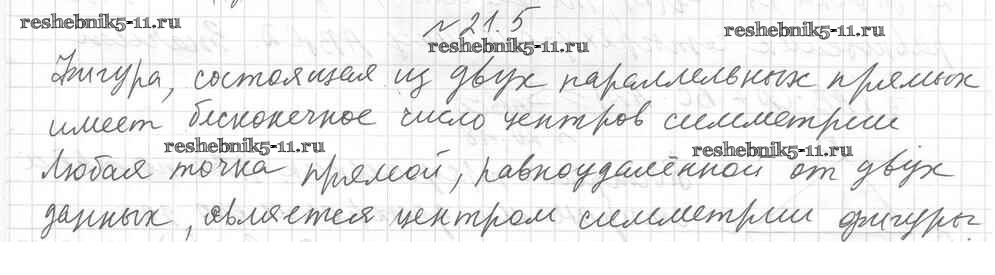 reshebnik5-11.ru
№ 21.5
reshebnik5-11.ru
reshebnik5-11.ru
Фигура, состоящая из двух параллельных прямых
имеет бесконечное число центров симметрии
reshebnik5-11.ru
reshebnik5-11.ru
Любая точка прямой, равноудалённой от двух
данных, является центром симметрии фигуры.